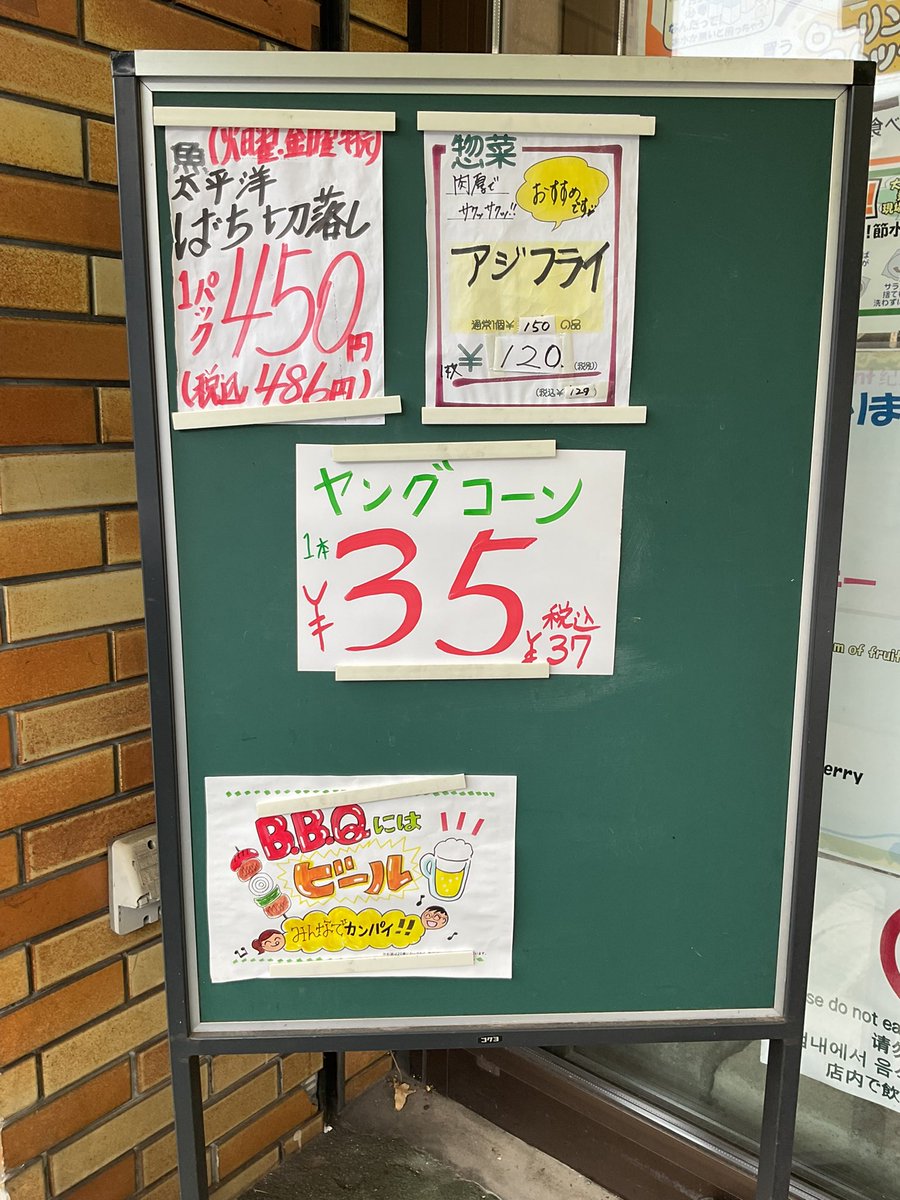 魚
(火曜.金曜特売)
太平洋
ばち切落し
1パック
450円
(税込 486円)
惣菜
肉厚で
サクッサクッ!!
おすすめ
です
アジフライ
通常1個¥ 150 の品
1枚 ¥ 120. (税別)
(税込¥ 129)
ヤングコーン
1本
¥35
税込
¥37
B.B.Qには
ビール
みんなでカンパイ!!
コクヨ
食べ
!節水
洗わず
erry
se do not ea
请勿
店内で飲